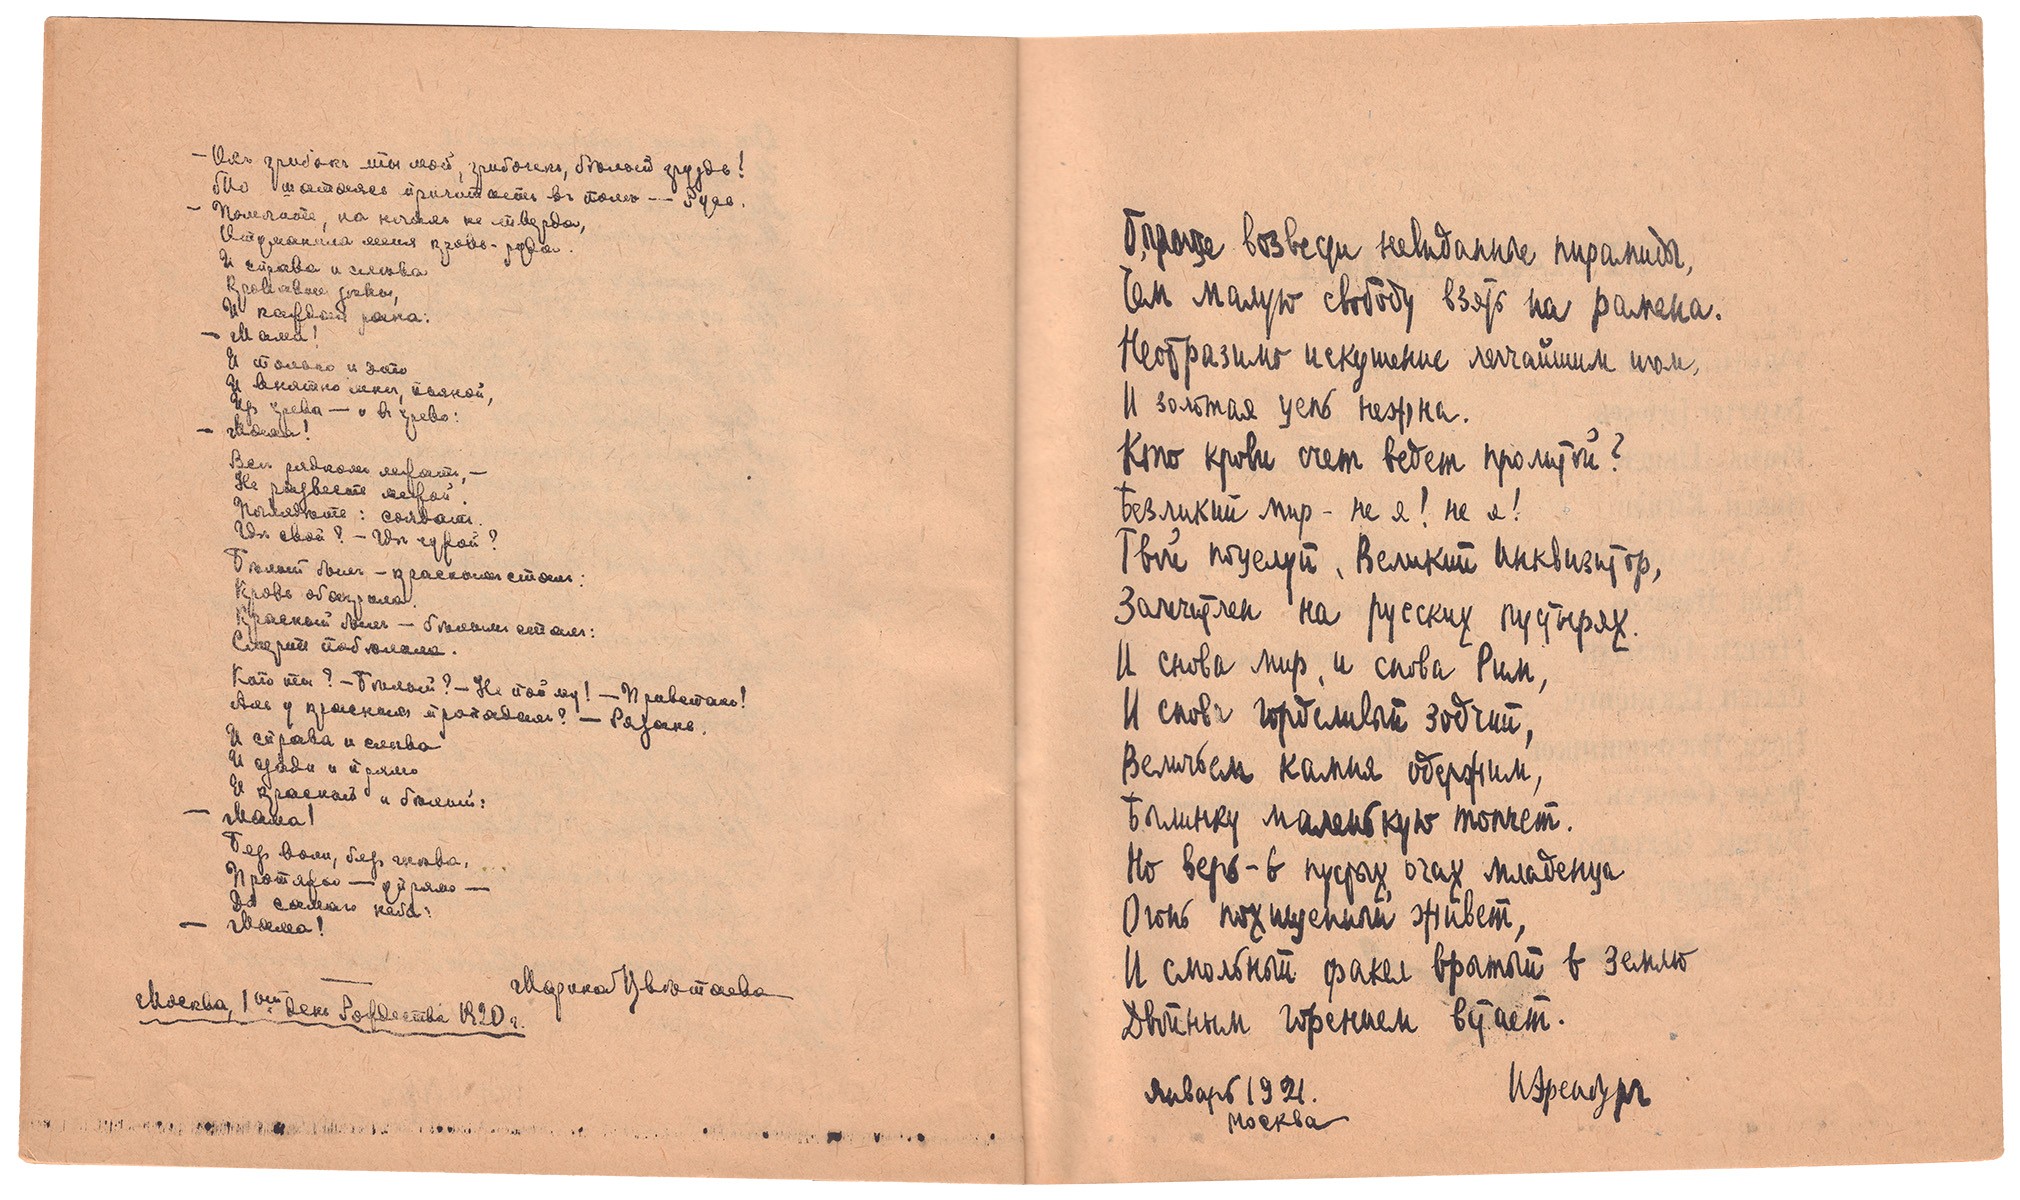 — Охъ грибокъ ты мой, грибочекъ, бѣлый груздь!
То шатаясь причитаетъ въ полѣ — Русь.
— Помогите, на ногахъ не тверда,
Отуманила меня кровь-руда.
И справа и слѣва
Кровавые зѣвы,
И каждая рана:
— Мама!
И только и это
И внятно мнѣ, пьяной,
Из чрева — и въ чрево:
— Мама!
Всѣ рядкомъ лежатъ, —
Не развесть межой.
Поглядѣть: солдатъ.
Гдѣ свой? — Гдѣ чужой?
Бѣлый былъ — краснымъ сталъ:
Кровь обагрила.
Красный былъ — бѣлымъ сталъ:
Смерть побѣлила.
Кто ты? — Бѣлый? — Не пойму! — Привстань!
Аль у красныхъ пропадалъ? — Рязань.
И справа и слѣва
И сзади и прямо
И красный и бѣлый:
— Мама!
Без воли, без гнѣва,
Протяжно — упрямо —
До самаго неба:
— Мама!
Марина Цвѣтаева
Москва, 1ый день Рождества 1920 г.
проще возвести невиданные пирамиды,
Чем малую свободу взять на рамена.
Необразимо искушение легчайшим игом,
И золотая цепь нежна.
Кто крови счет ведет пролитой?
Безликий мир - не я! не я!
Твой поцелуй, Великий Инквизитор,
Запечатлен на русских пустырях.
И снова мир, и снова Рим,
И снова горделивый зодчий,
Величьем камня одержим,
Былинку маленькую топчет.
Но верь - в пустых очах младенца
Огонь похищенный живет,
И смольный факел врытый в землю
Двойным горением встает.
Январь 1921.
Москва
ИЭренбург